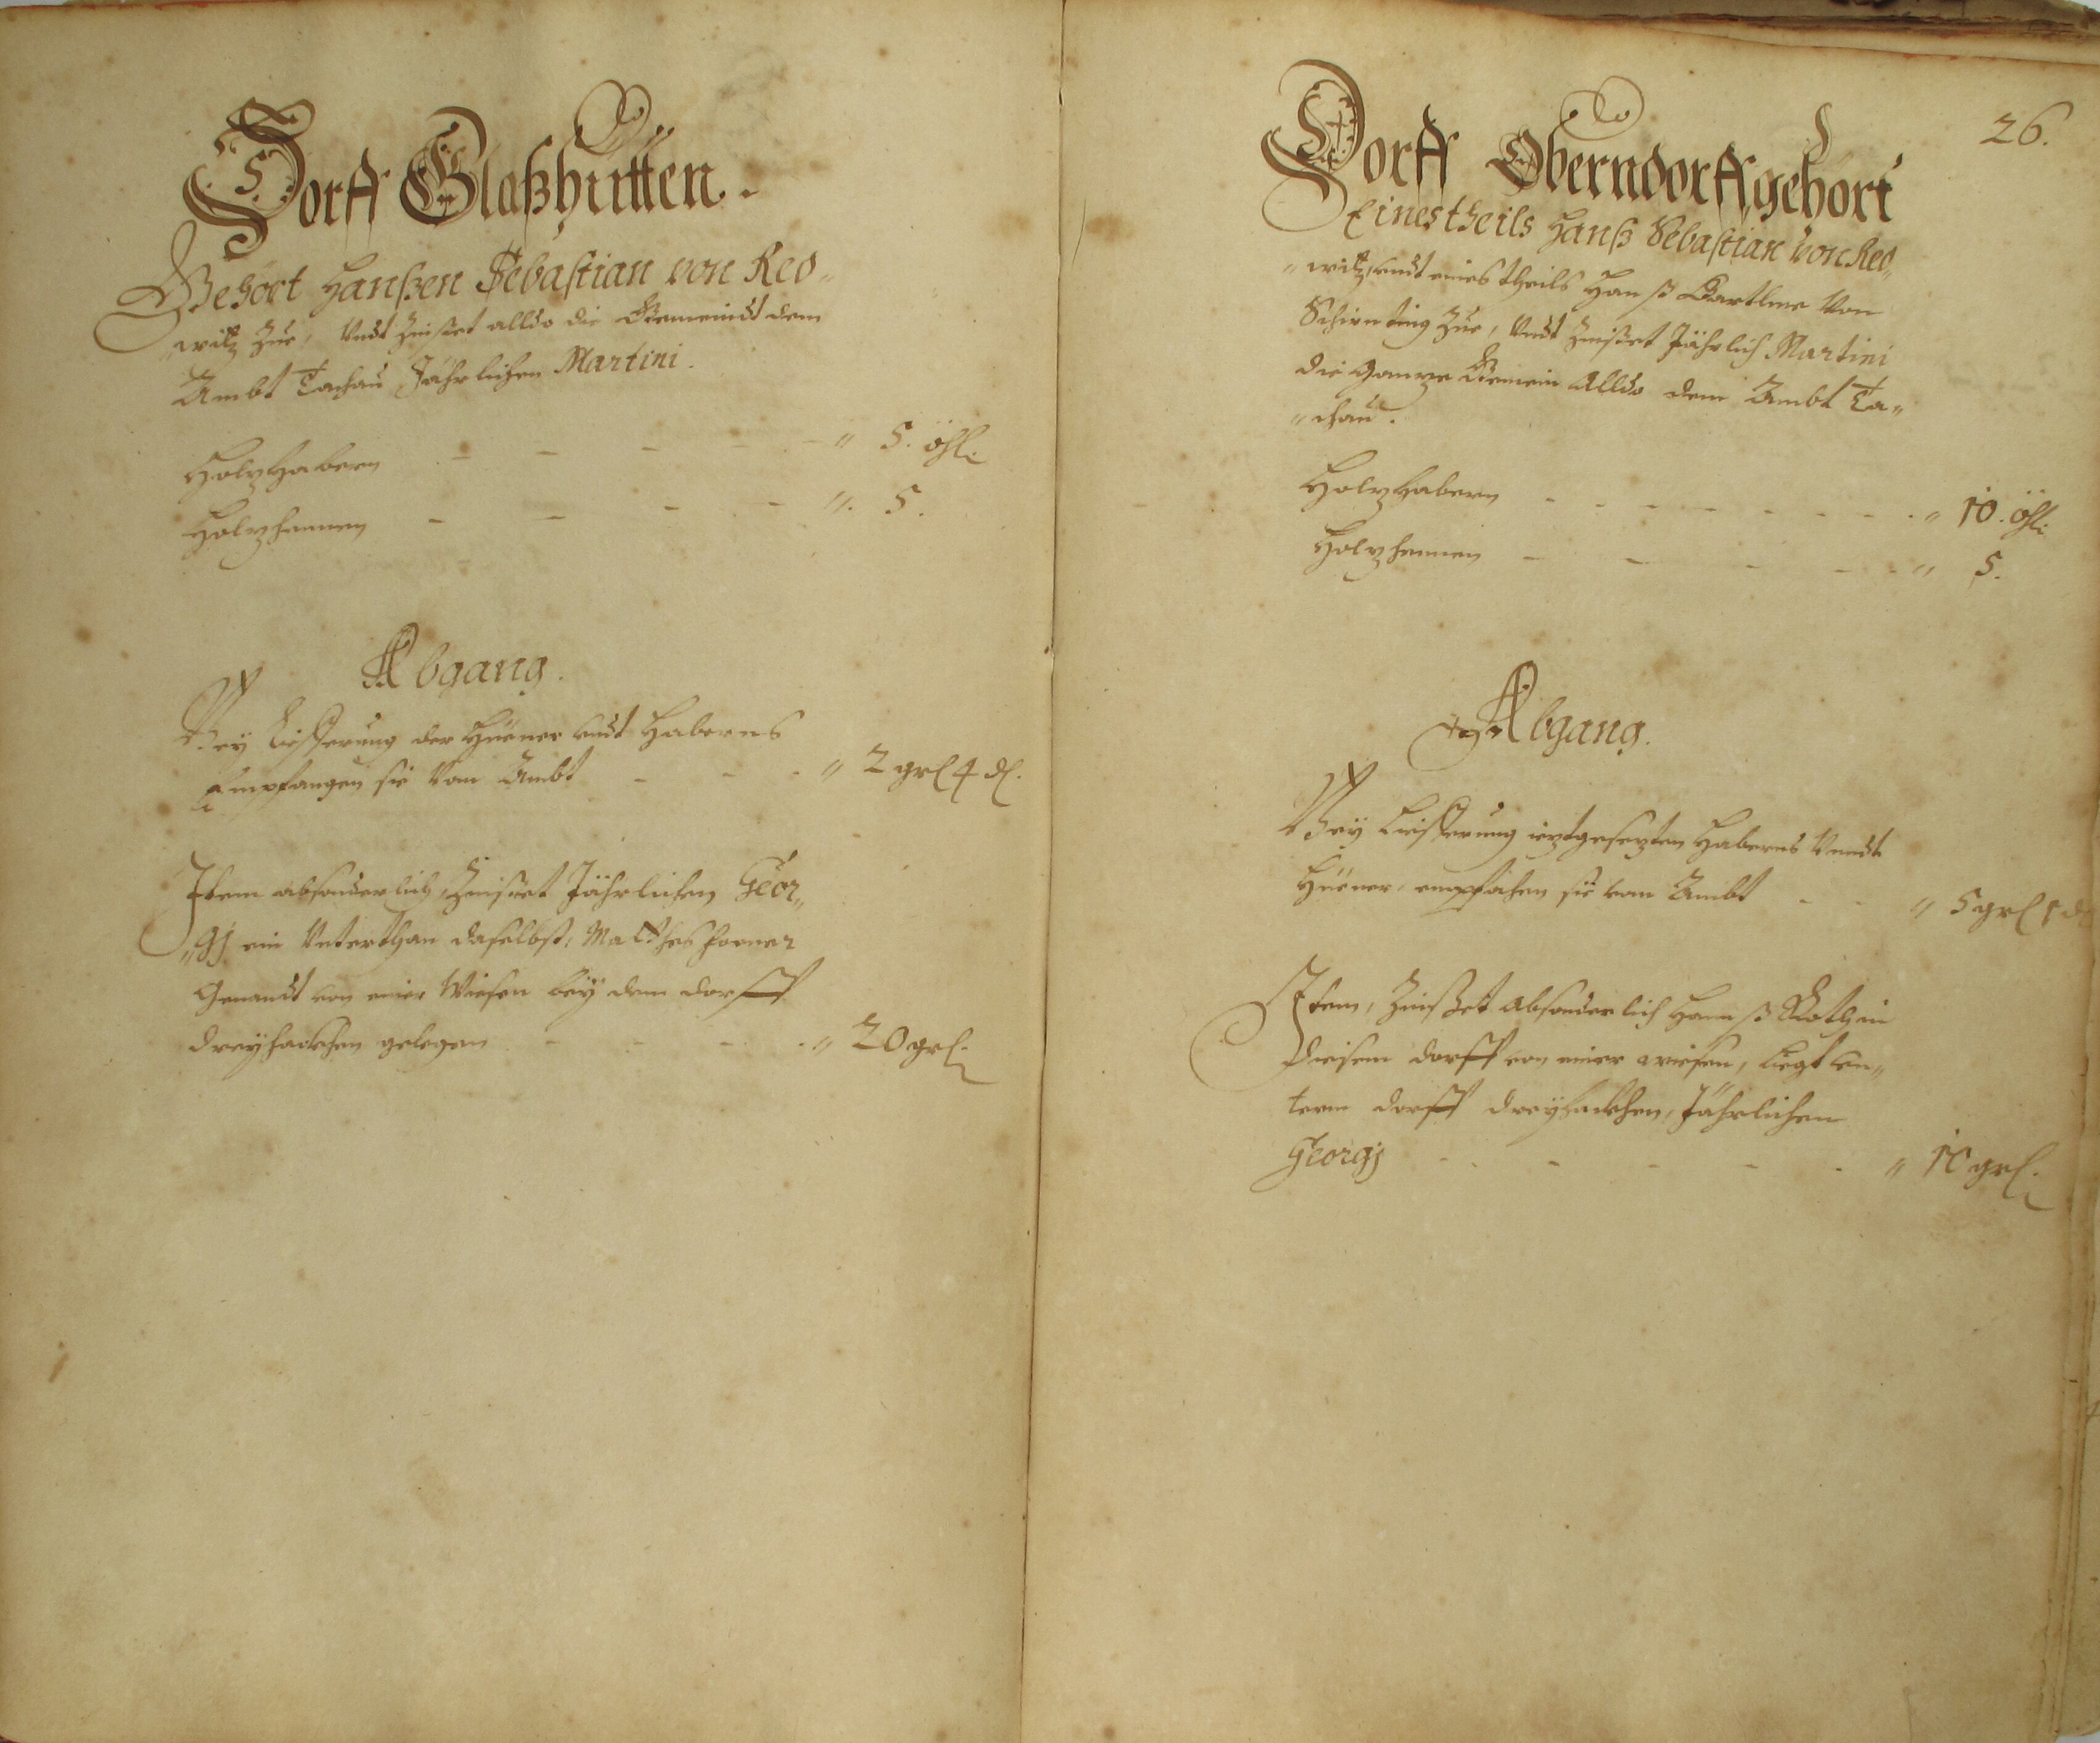 Dorff Glaßhütten.
Gehört Hanßen Sebastian von Red„
„witz zue, Undt Zinßet alldo die Gemeindt dem
Ambt Tachau Jährlichen Martini.
Holzhabern - - - - - „ 5. öhl:
Holzhennen - - - - „. 5.
Abgang.
Bey Liefferung der Hüener undt Haberns
Empfangen sie Vom Ambt - - . „ 2 grl 4 dl.
Item absonderlich Zinßet Jährlichen Geor„
„gj ein Unterthan daselbst, Matthes
Genandt von einer Wiesen bey dem dorff
dreyhackhen gelegen - - - . „ 20 grl.
26.
Dorff Oberndorff gehört
Einestheils Hanß Sebastian von Red„
„witz, undt einestheils Hanß Bartlme Von
Schirnting Zue, Undt Zinßet Jährlich Martini
die Ganze Gemein Alldo dem Ambt Ta„
„chau.
Holzhabern - - - - - - - . „ 10. öhl:
Holzhennen - - - - - „ 5.
Abgang.
Bey Liefferung ieztgesezten Haberns Vnndt
Hüener, empfahen sie vom Ambt - - „ 5 grl 1 d
Item, Zinßet Absonderlich Hannß in
diesem dorff von einer wiesen, liegt un„
term dorff dreyhackhen, Jährlichen
Georgj - . - - - . „ 10 grl.